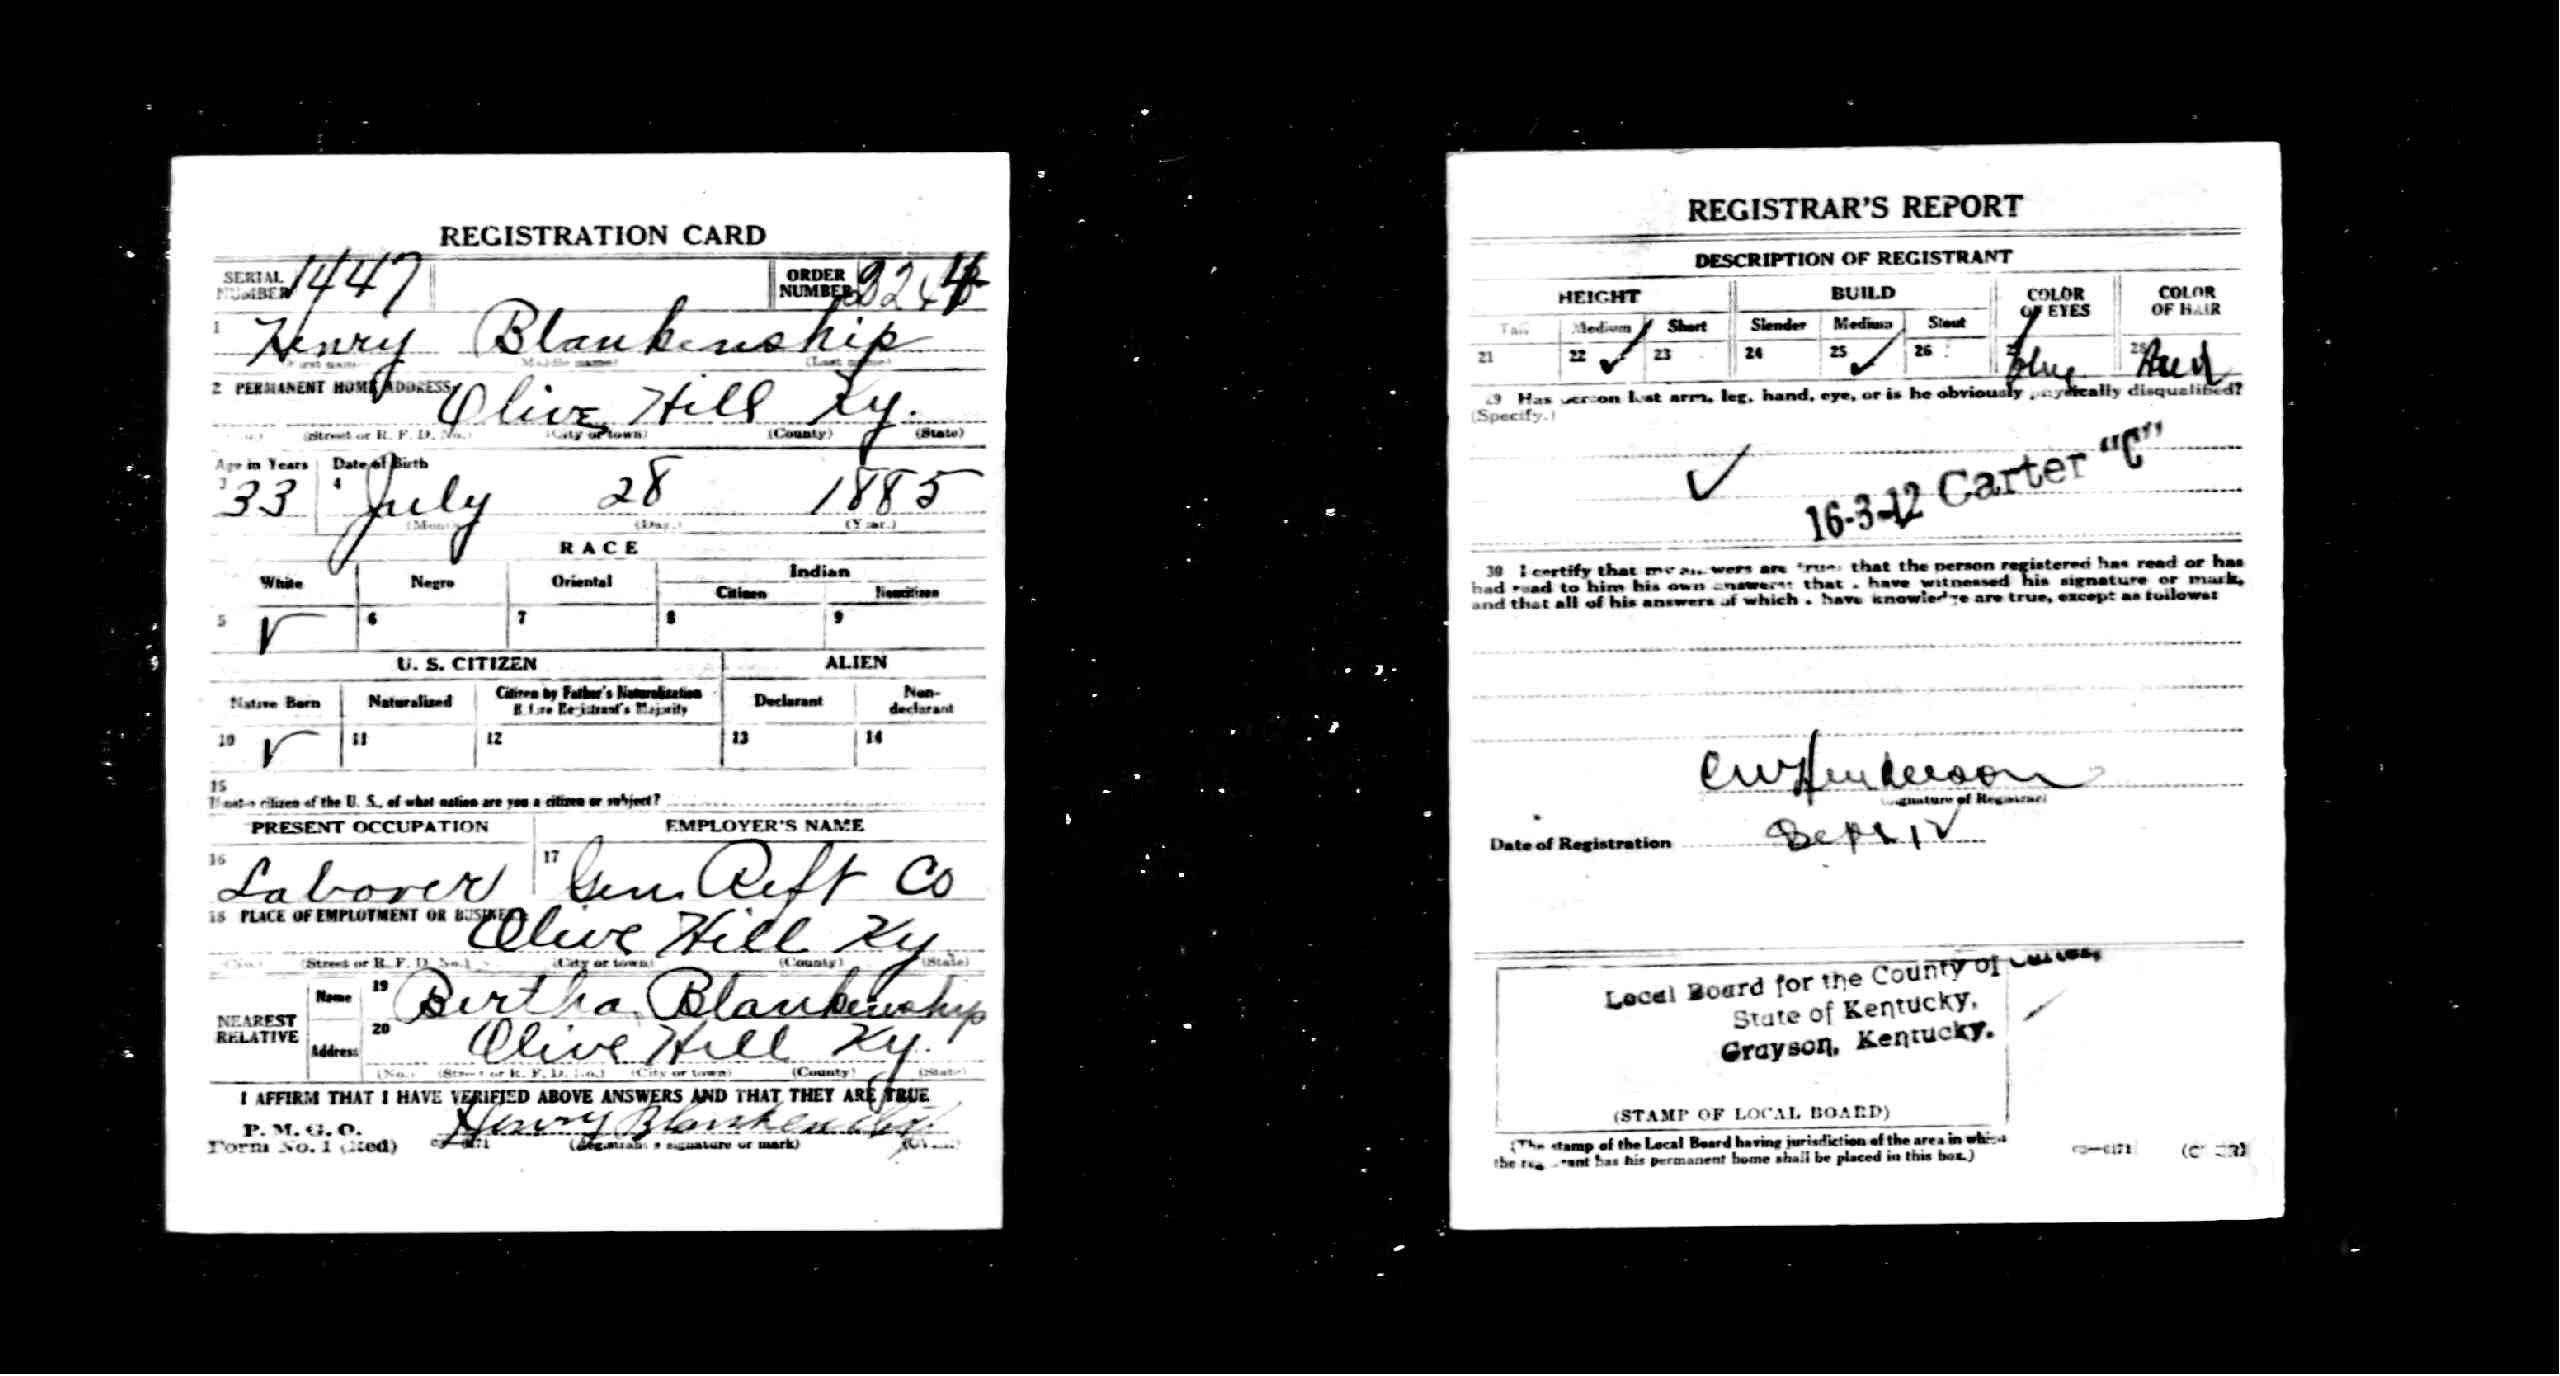 REGISTRATION CARD
SERIAL NUMBER 1447 ORDER NUMBER
1 Henry Blankenship
(First name) (Middle name) (Last name)
2 PERMANENT HOME ADDRESS
Olive Hill Ky.
(Street or R. F. D. No.) (City or town) (County) (State)
Age in Years Date of Birth
3 33 4 July 28 1885
(Month) (Day.) (Year.)
RACE
White Negro Oriental Indian
Citizen Noncitizen
5 ✓ 6 7 8 9
U. S. CITIZEN ALIEN
Native Born Naturalized Citizen by Father's Naturalization Before Registrant's Majority Declarant Non-declarant
10 ✓ 11 12 13 14
15
If not a citizen of the U. S., of what nation are you a citizen or subject?
PRESENT OCCUPATION EMPLOYER'S NAME
16 Laborer 17 Gen. Reft Co
18 PLACE OF EMPLOYMENT OR BUSINESS
Olive Hill Ky
(No.) (Street or R. F. D. No.) (City or town) (County) (State)
NEAREST RELATIVE
Name 19 Bertha Blankenship
Address 20 Olive Hill Ky.
(No.) (Street or R. F. D. No.) (City or town) (County) (State)
I AFFIRM THAT I HAVE VERIFIED ABOVE ANSWERS AND THAT THEY ARE TRUE
P. M. G. O.
Form No. 1 (Red) Henry Blankenship
(Registrant's signature or mark)
REGISTRAR'S REPORT
DESCRIPTION OF REGISTRANT
HEIGHT BUILD COLOR OF EYES COLOR OF HAIR
Tall Medium Short Slender Medium Stout
21 22 ✓ 23 24 25 ✓ 26 blue
29 Has person lost arm, leg, hand, eye, or is he obviously physically disqualified?
(Specify.)
✓
16-3-12 Carter "C"
30 I certify that my answers are true; that the person registered has read or has
had read to him his own answers; that I have witnessed his signature or mark,
and that all of his answers of which I have knowledge are true, except as follows:
CW Henderson
(Signature of Registrar)
Date of Registration Sept 12
Local Board for the County of Carter,
State of Kentucky,
Grayson, Kentucky.
(STAMP OF LOCAL BOARD)
(The stamp of the Local Board having jurisdiction of the area in which
the registrant has his permanent home shall be placed in this box.)